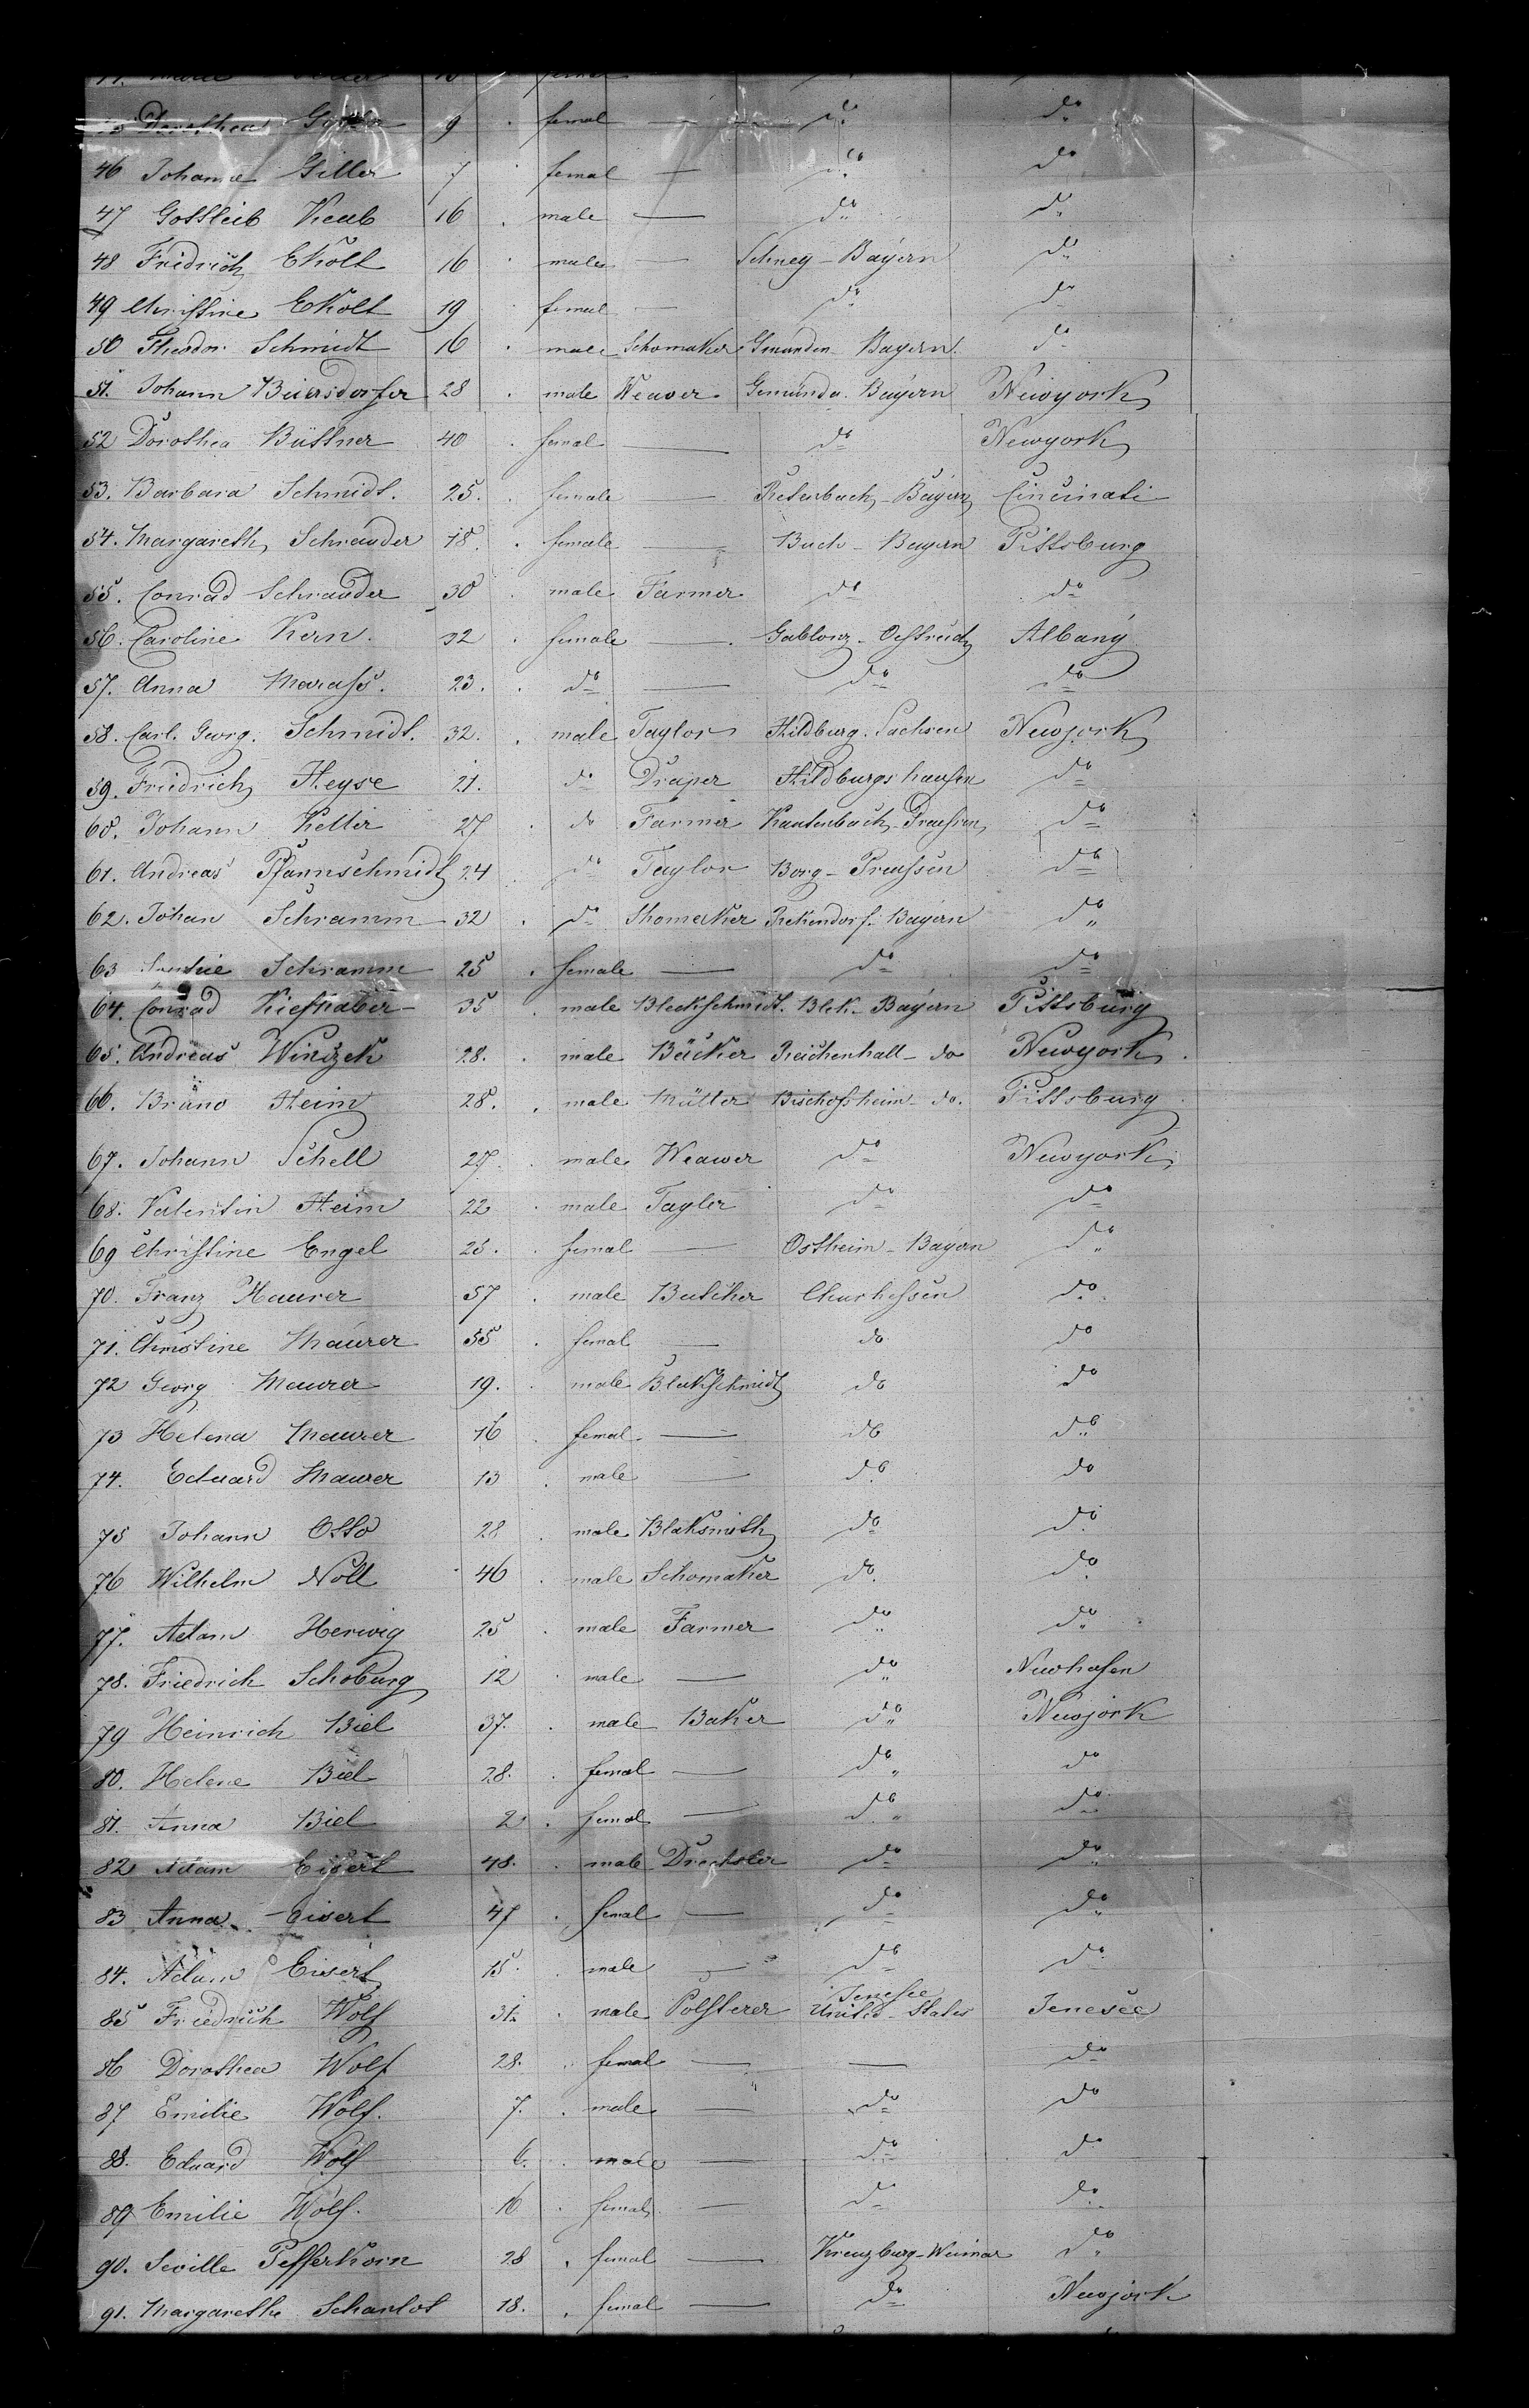 Dorothea 9 femal do do
46 Johanne Giller 7 femal do do
47 Gottleib Keeb 16 male do do
48 Fridrich Ekolt 16 male Schney - Bayern do
49 Christine Ekolt 19 femal do do
50 Theodor Schmidt 16 male Schomaker Gmünden Bayern do
51. Johann Beiersdorfer 28 male Weaver Gemünda. Bayern Newyork
52 Dorothea Büttner 40 femal do Newyork
53. Barbara Schmidt. 25. female Retenbach - Bayern Cincinati
54. Margareth Schrauder 18. female Buch - Bayern Pittsburg
55. Conrad Schrauder 30 male Farmer do do
56. Caroline Kern. 32 female Gablonz - Oestreich Albany
57. Anna Marass. 23. do do do
58. Carl. Georg. Schmidt. 32. male Taylor Hildburg. Sachsen Newjork
59. Friedrich Heyse 21. do Draper Hildburgshausen do
60. Johann Keller 27 do Farmer Kautenbach - Preussen do
61. Andreas Pfannschmidt 24 do Taylor Borg - Preussen do
62. Johan Schramm 32 do Shomaker Rekendorf. Bayern do
63 Schramm 25 female do do
64. Conrad Kieshaber 35 male Bleckschmidt. Blek. Bayern Pittsburg
65. Andreas Winizek 28. male Bäcker Reichenhall - do Newyork
66. Bruno Heim 28. male Müller Bischofsheim - do. Pittsburg
67. Johann Schell 27. male Weawer do Newyork
68. Valentin Heim 22 male Tayler do do
69 Christine Engel 25. femal Ostheim - Bayern do
70. Franz Maurer 57 male Butcher Churhessen do
71. Christine Maurer 55 femal do do
72 Georg Maurer 19. male Blakschmidt do do
73 Helena Maurer 16 femal do do
74. Eduard Maurer 13 male do do
75 Johann Otto 28 male Blaksmith do do
76 Wilhelm Noll 46 male Schomaker do. do.
77. Adam Herwig 25 male Farmer do do
78. Friedrich Schoburg 12 male do Newhafen
79 Heinrich Biel 37. male Baker do Newjork
80. Helene Biel 28. femal do do
81. Anna Biel 2 femal do do
82 Adam Eisert 48. male Drechsler do do
83 Anna Eisert 47 femal do do
84. Adam Eisert 15. male do do
85 Friedrich Wolf 31. male Polsterer Tenesee United - States Tenesee
86 Dorothea Wolf 28. femal do
87 Emilie Wolf. 7. male do do
88. Eduard Wolf 6. male do do
89 Emilie Wolf. 16 femal do do
90. Seville Pefferkorn 28 femal Kreuzburg - Weimar do
91. Margarethe Scharlot 18. femal do Newjork